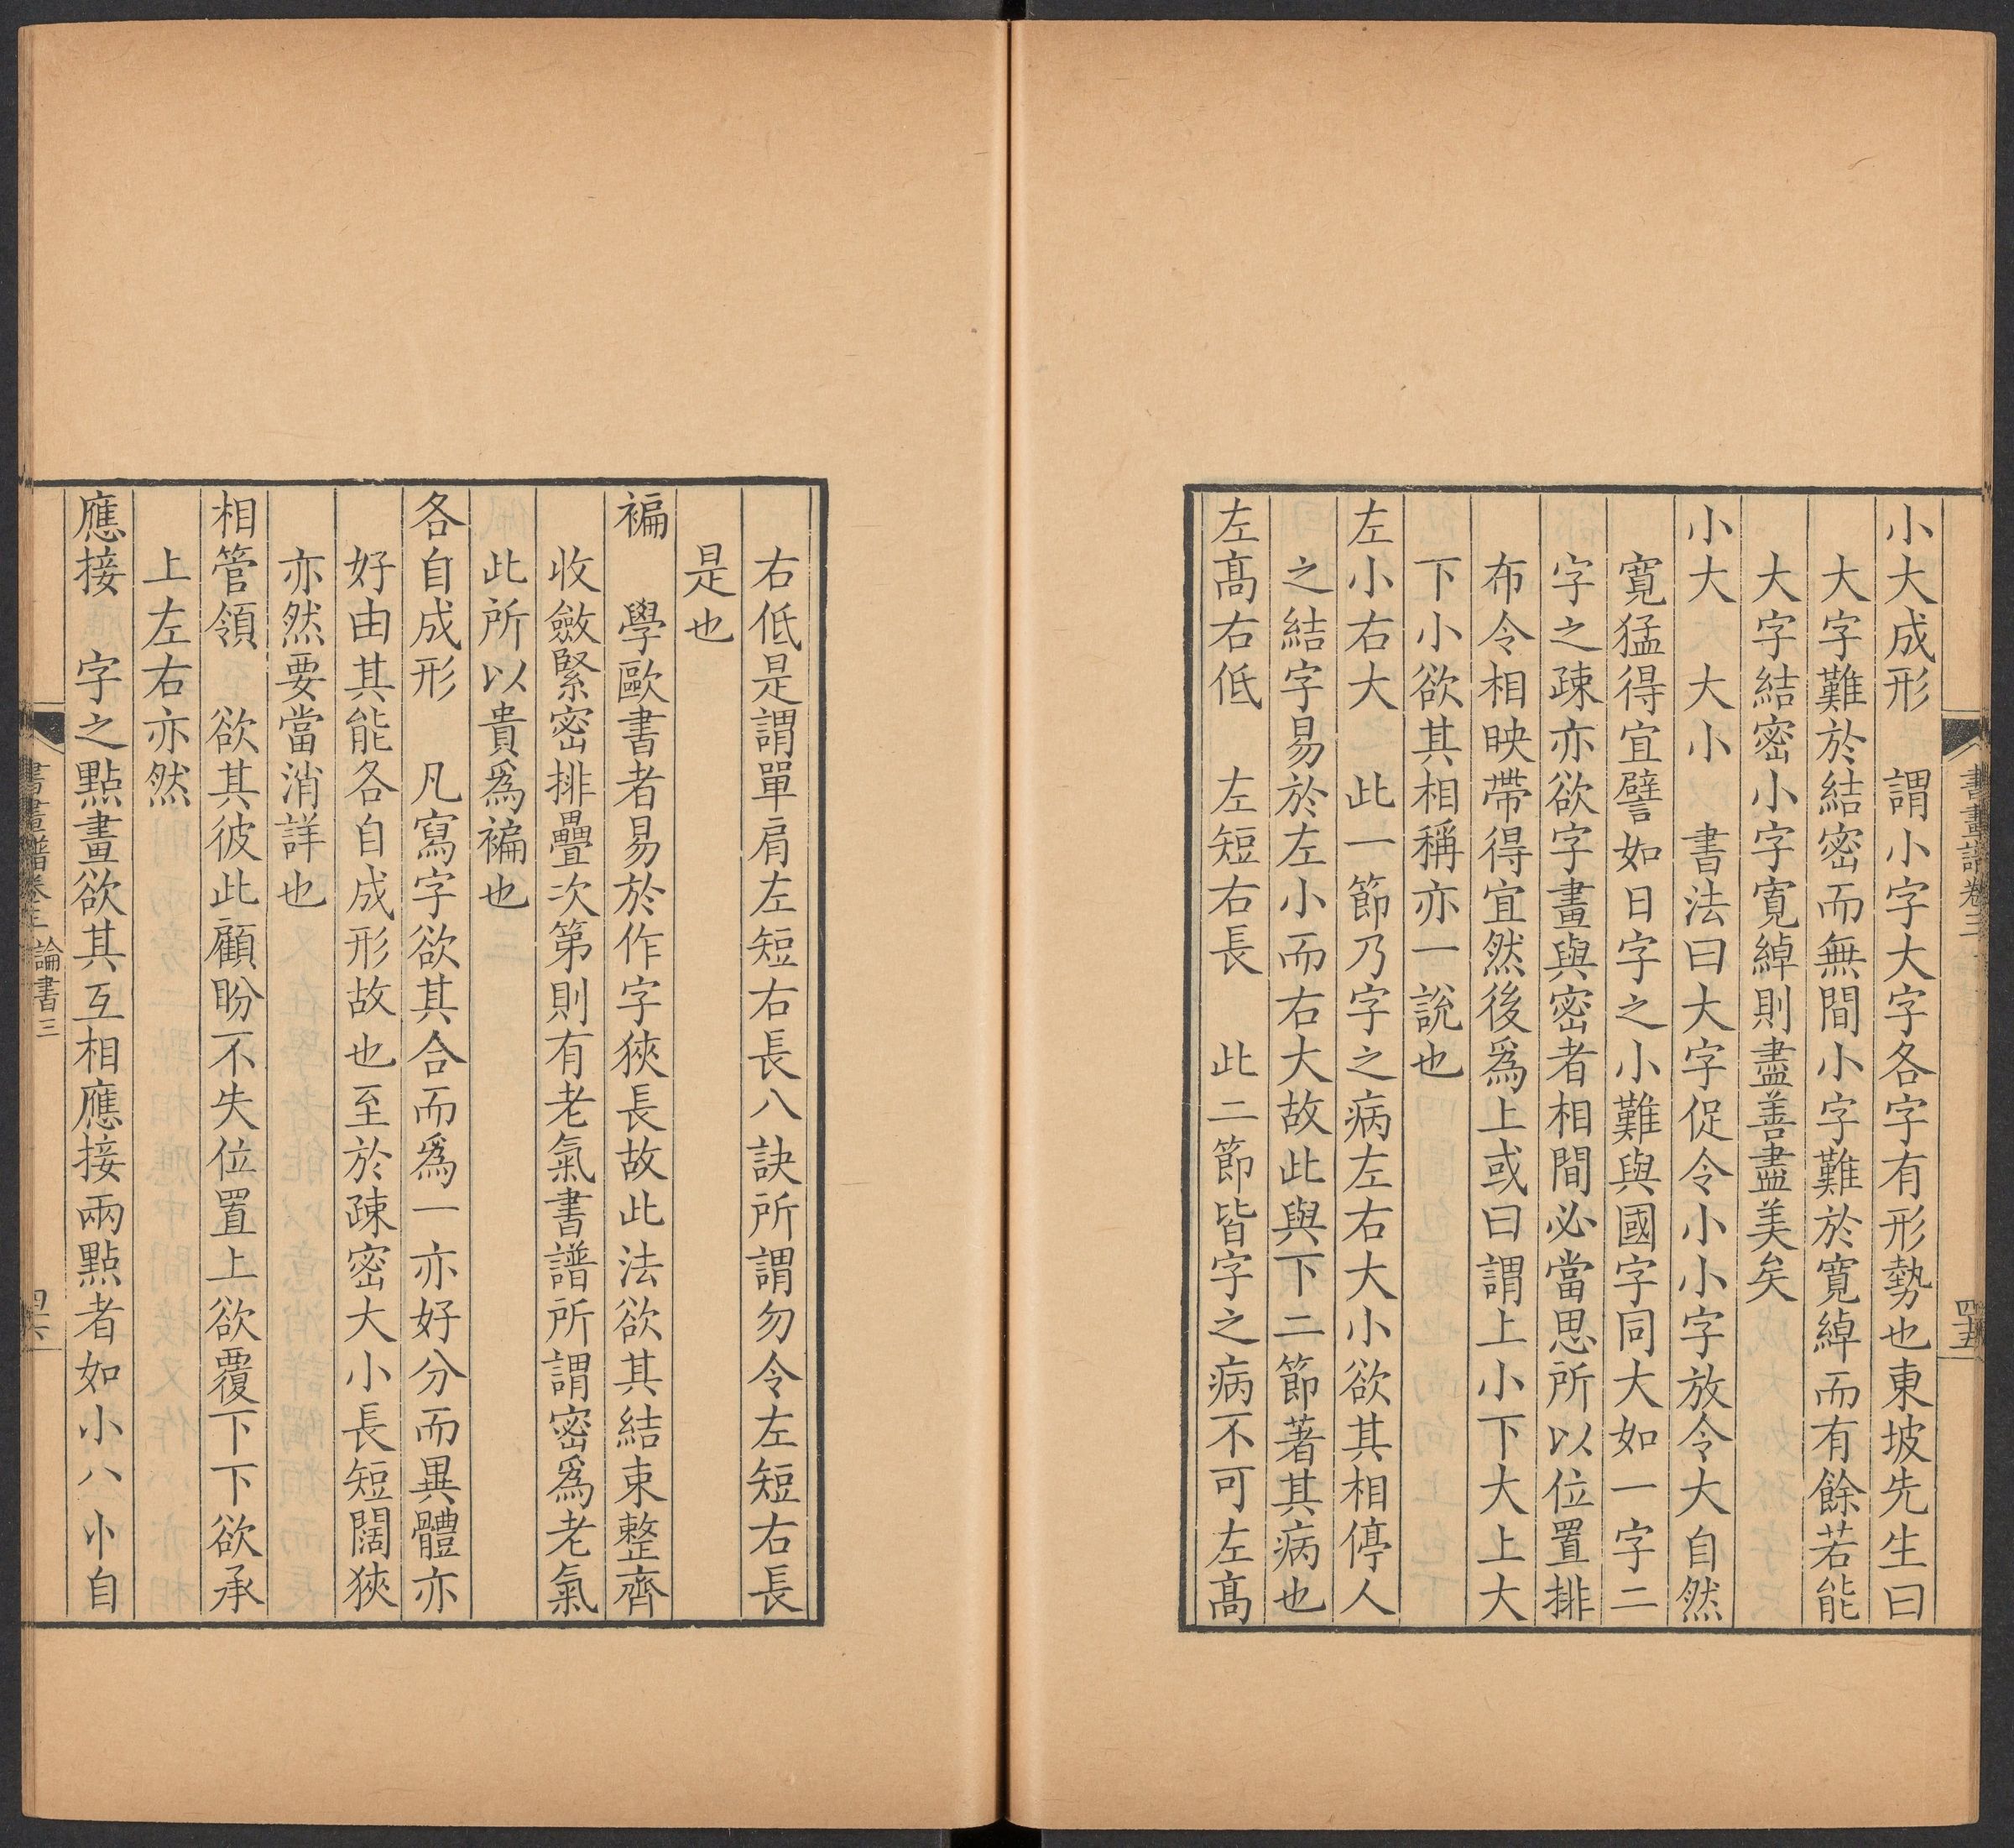 書畫譜卷三
四十五
小大成形 謂小字大字各字有形勢也東坡先生曰
大字難於結密而無間小字難於寬綽而有餘若能
大字結密小字寬綽則盡善盡美矣
小大 大小 書法曰大字促令小小字放令大自然
寬猛得宜譬如日字之小難與國字同大如一字二
字之疎亦欲字畫與密者相間必當思所以位置排
布令相映帶得宜然後爲上或曰謂上小下大上大
下小欲其相稱亦一說也
左小右大 此一節乃字之病左右大小欲其相停人
之結字易於左小而右大故此與下二節著其病也
左髙右低 左短右長 此二節皆字之病不可左髙
右低是謂單肩左短右長八訣所謂勿令左短右長
是也
褊 學歐書者易於作字狹長故此法欲其結束整齊
收斂緊密排疊次第則有老氣書譜所謂密爲老氣
此所以貴爲褊也
各自成形 凡寫字欲其合而爲一亦好分而異體亦
好由其能各自成形故也至於疎密大小長短闊狹
亦然要當消詳也
相管領 欲其彼此顧盼不失位置上欲覆下下欲承
上左右亦然
應接 字之點畫欲其互相應接兩點者如小八忄自
書畫譜卷三 論書三
四十六